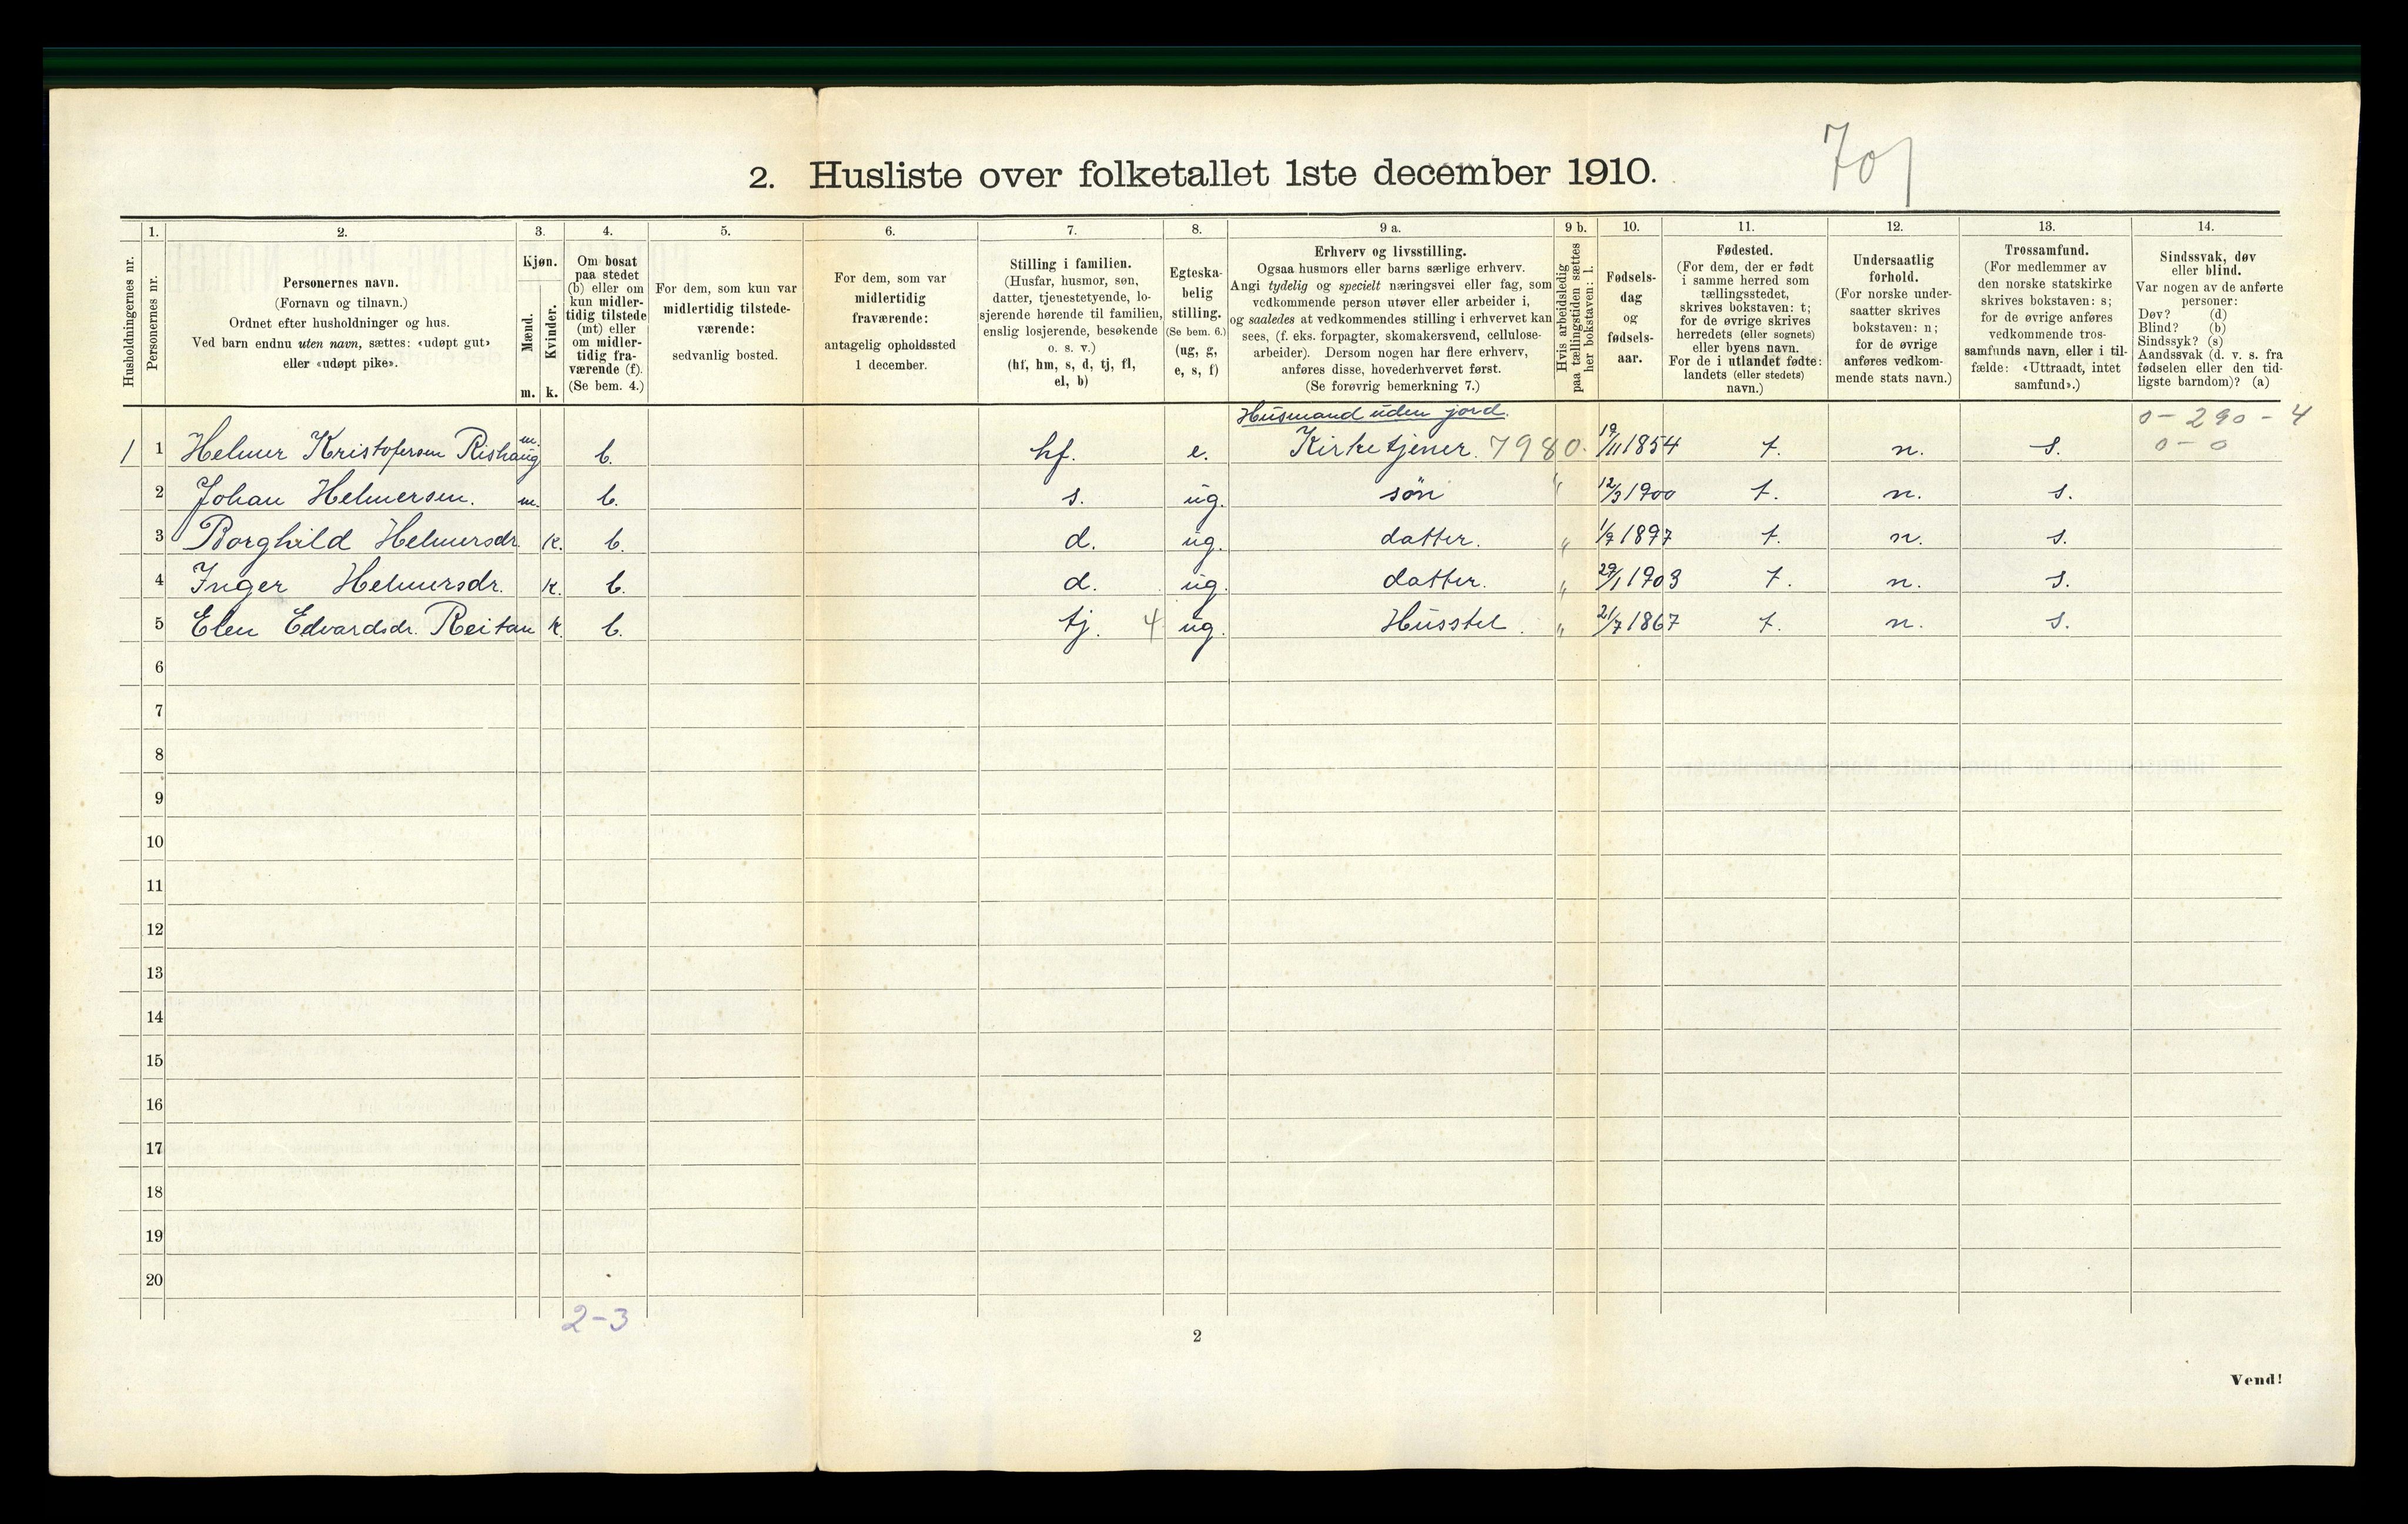 70
2. Husliste over folketallet 1ste december 1910.
1. 2. 3. 4. 5. 6. 7. 8. 9 a. 9 b. 10. 11. 12. 13. 14.
Husholdningernes nr.
Personernes nr.
Personernes navn.
(Fornavn og tilnavn.)
Ordnet efter husholdninger og hus.
Ved barn endnu uten navn, sættes: «udøpt gut»
eller «udøpt pike».
Kjøn.
Mænd.
Kvinder.
m. k.
Om bosat
paa stedet
(b) eller om
kun midler-
tidig tilstede
(mt) eller
om midler-
tidig fra-
værende (f).
(Se bem. 4.)
For dem, som kun var
midlertidig tilstede-
værende:
sedvanlig bosted.
For dem, som var
midlertidig
fraværende:
antagelig opholdssted
1 december.
Stilling i familien.
(Husfar, husmor, søn,
datter, tjenestetyende, lo-
sjerende hørende til familien,
enslig losjerende, besøkende
o. s. v.)
(hf, hm, s, d, tj, fl,
el, b)
Egteska-
belig
stilling.
(Se bem. 6.)
(ug, g,
e, s, f)
Erhverv og livsstilling.
Ogsaa husmors eller barns særlige erhverv.
Angi tydelig og specielt næringsvei eller fag, som
vedkommende person utøver eller arbeider i,
og saaledes at vedkommendes stilling i erhvervet kan
sees, (f. eks. forpagter, skomakersvend, cellulose-
arbeider). Dersom nogen har flere erhverv,
anføres disse, hovederhvervet først.
(Se forøvrig bemerkning 7.)
Hvis arbeidsledig
paa tællingstiden sættes
her bokstaven: l.
Fødsels-
dag
og
fødsels-
aar.
Fødested.
(For dem, der er født
i samme herred som
tællingsstedet,
skrives bokstaven: t;
for de øvrige skrives
herredets (eller sognets)
eller byens navn.
For de i utlandet fødte:
landets (eller stedets)
navn.)
Undersaatlig
forhold.
(For norske under-
saatter skrives
bokstaven: n;
for de øvrige
anføres vedkom-
mende stats navn.)
Trossamfund.
(For medlemmer av
den norske statskirke
skrives bokstaven: s;
for de øvrige anføres
vedkommende tros-
samfunds navn, eller i til-
fælde: «Uttraadt, intet
samfund».)
Sindssvak, døv
eller blind.
Var nogen av de anførte
personer:
Døv? (d)
Blind? (b)
Sindssyk? (s)
Aandssvak (d. v. s. fra
fødselen eller den tid-
ligste barndom)? (a)
Husmand uden jord. 0-290-4
1 1 Helmer Kristofersen Rishaug m. b. hf. e. Kirketjener. 7980. 19/11 1854 t. n. s. 0-0
2 Johan Helmersen. m. b. s. ug. søn " 12/3 1900 t. n. s.
3 Borghild Helmersdr. k. b. d. ug. datter. " 1/9 1897 t. n. s.
4 Inger Helmersdr. k. b. d. ug. datter. " 29/1 1903 t. n. s.
5 Elen Edvardsdr. Reitan k. b. tj. 4 ug. Husstel. " 21/7 1867 t. n. s.
6
7
8
9
10
11
12
13
14
15
16
17
18
19
20
2-3
2
Vend!